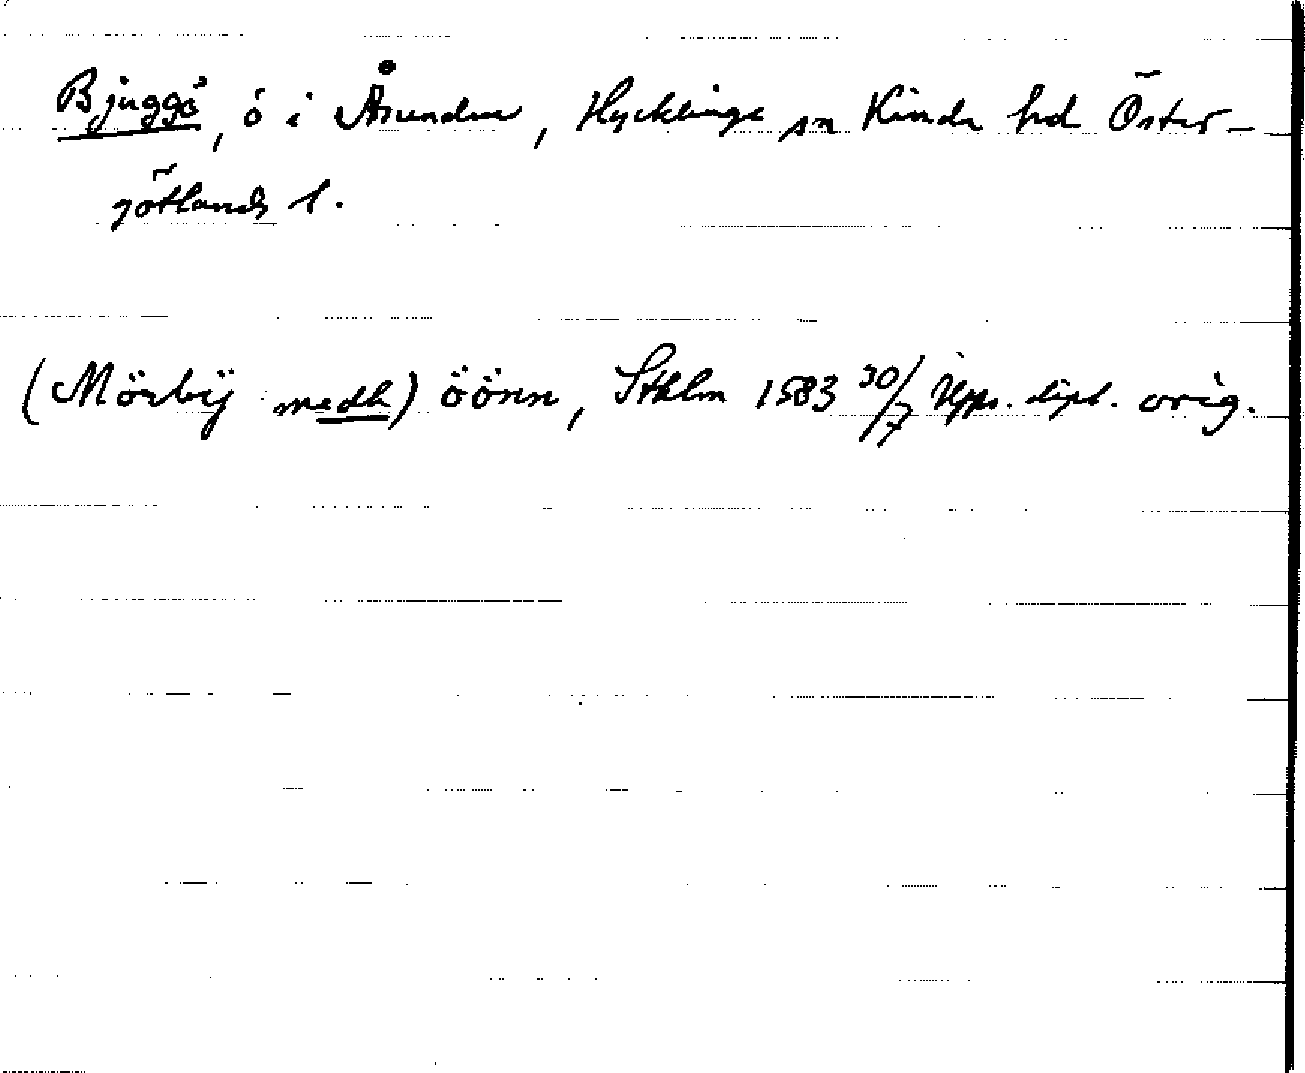 Bjuggö, ö i Åsunden, Hycklinge sn Kinda hd Öster-
götlands l.
(Mörbÿ medh) öönn, Sthlm 1583 30/7 Upps. dipl. orig.